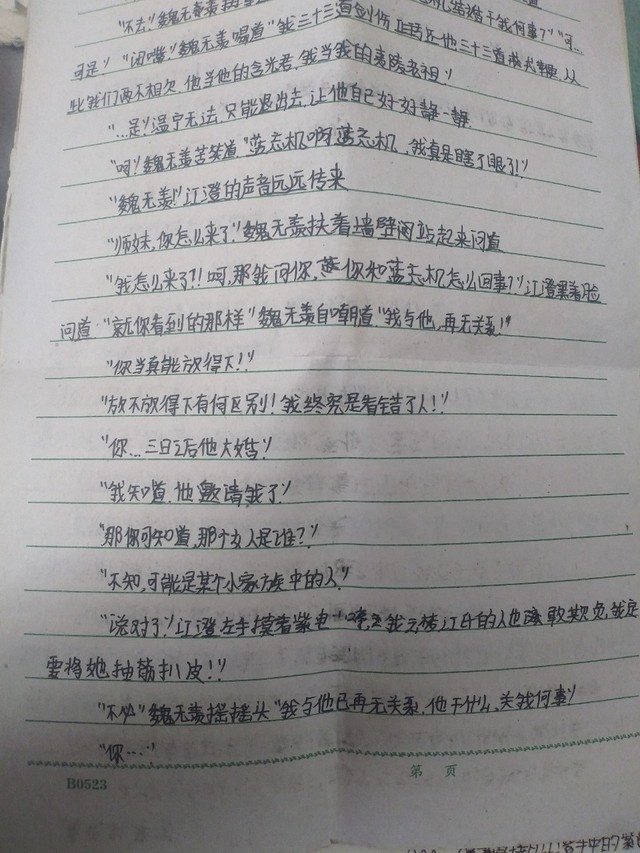 "不去!"魏无羡
机结婚干我何事?""可…
可是!""闭嘴!"魏无羡喝道"我三十三道剑伤正好还他三十三道戒鞭,从
此我们两不相欠,他当他的含光君,我当我的夷陵老祖!"
"…是!"温宁无法,只能退出去,让他自己好好静一静
"呵!"魏无羡苦笑道"蓝忘机啊蓝忘机,我真是瞎了眼了!"
"魏无羡!"江澄的声音远远传来
"师妹,你怎么来了"魏无羡扶着墙壁站起来问道
"我怎么来了?!呵,那我问你,你和蓝忘机怎么回事?"江澄黑着脸
问道"就你看到的那样"魏无羡自嘲道"我与他,再无关系!"
"你当真能放得下!"
"放不放得下有何区别!我终究是看错了人!"
"你…三日之后他大婚!"
"我知道,他邀请我了"
"那你可知道,那个女人是谁?"
"不知,可能是某个小家族中的人"
江澄左手摸着紫电"我云梦江氏的人也敢欺负,我定
要将她抽筋扒皮!!"
"不必"魏无羡摇摇头"我与他已再无关系,他干什么,关我何事"
"你……"
B0523
第 页